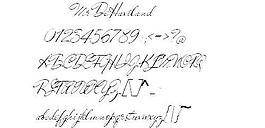 Mrs De Haviland
0123456789 :<=>?@
ABCDEFGHIJKLMNOPQ
RSTUVWXYZ[\]^_
abcdefghijklmnopqrstuvwxyz{|}~